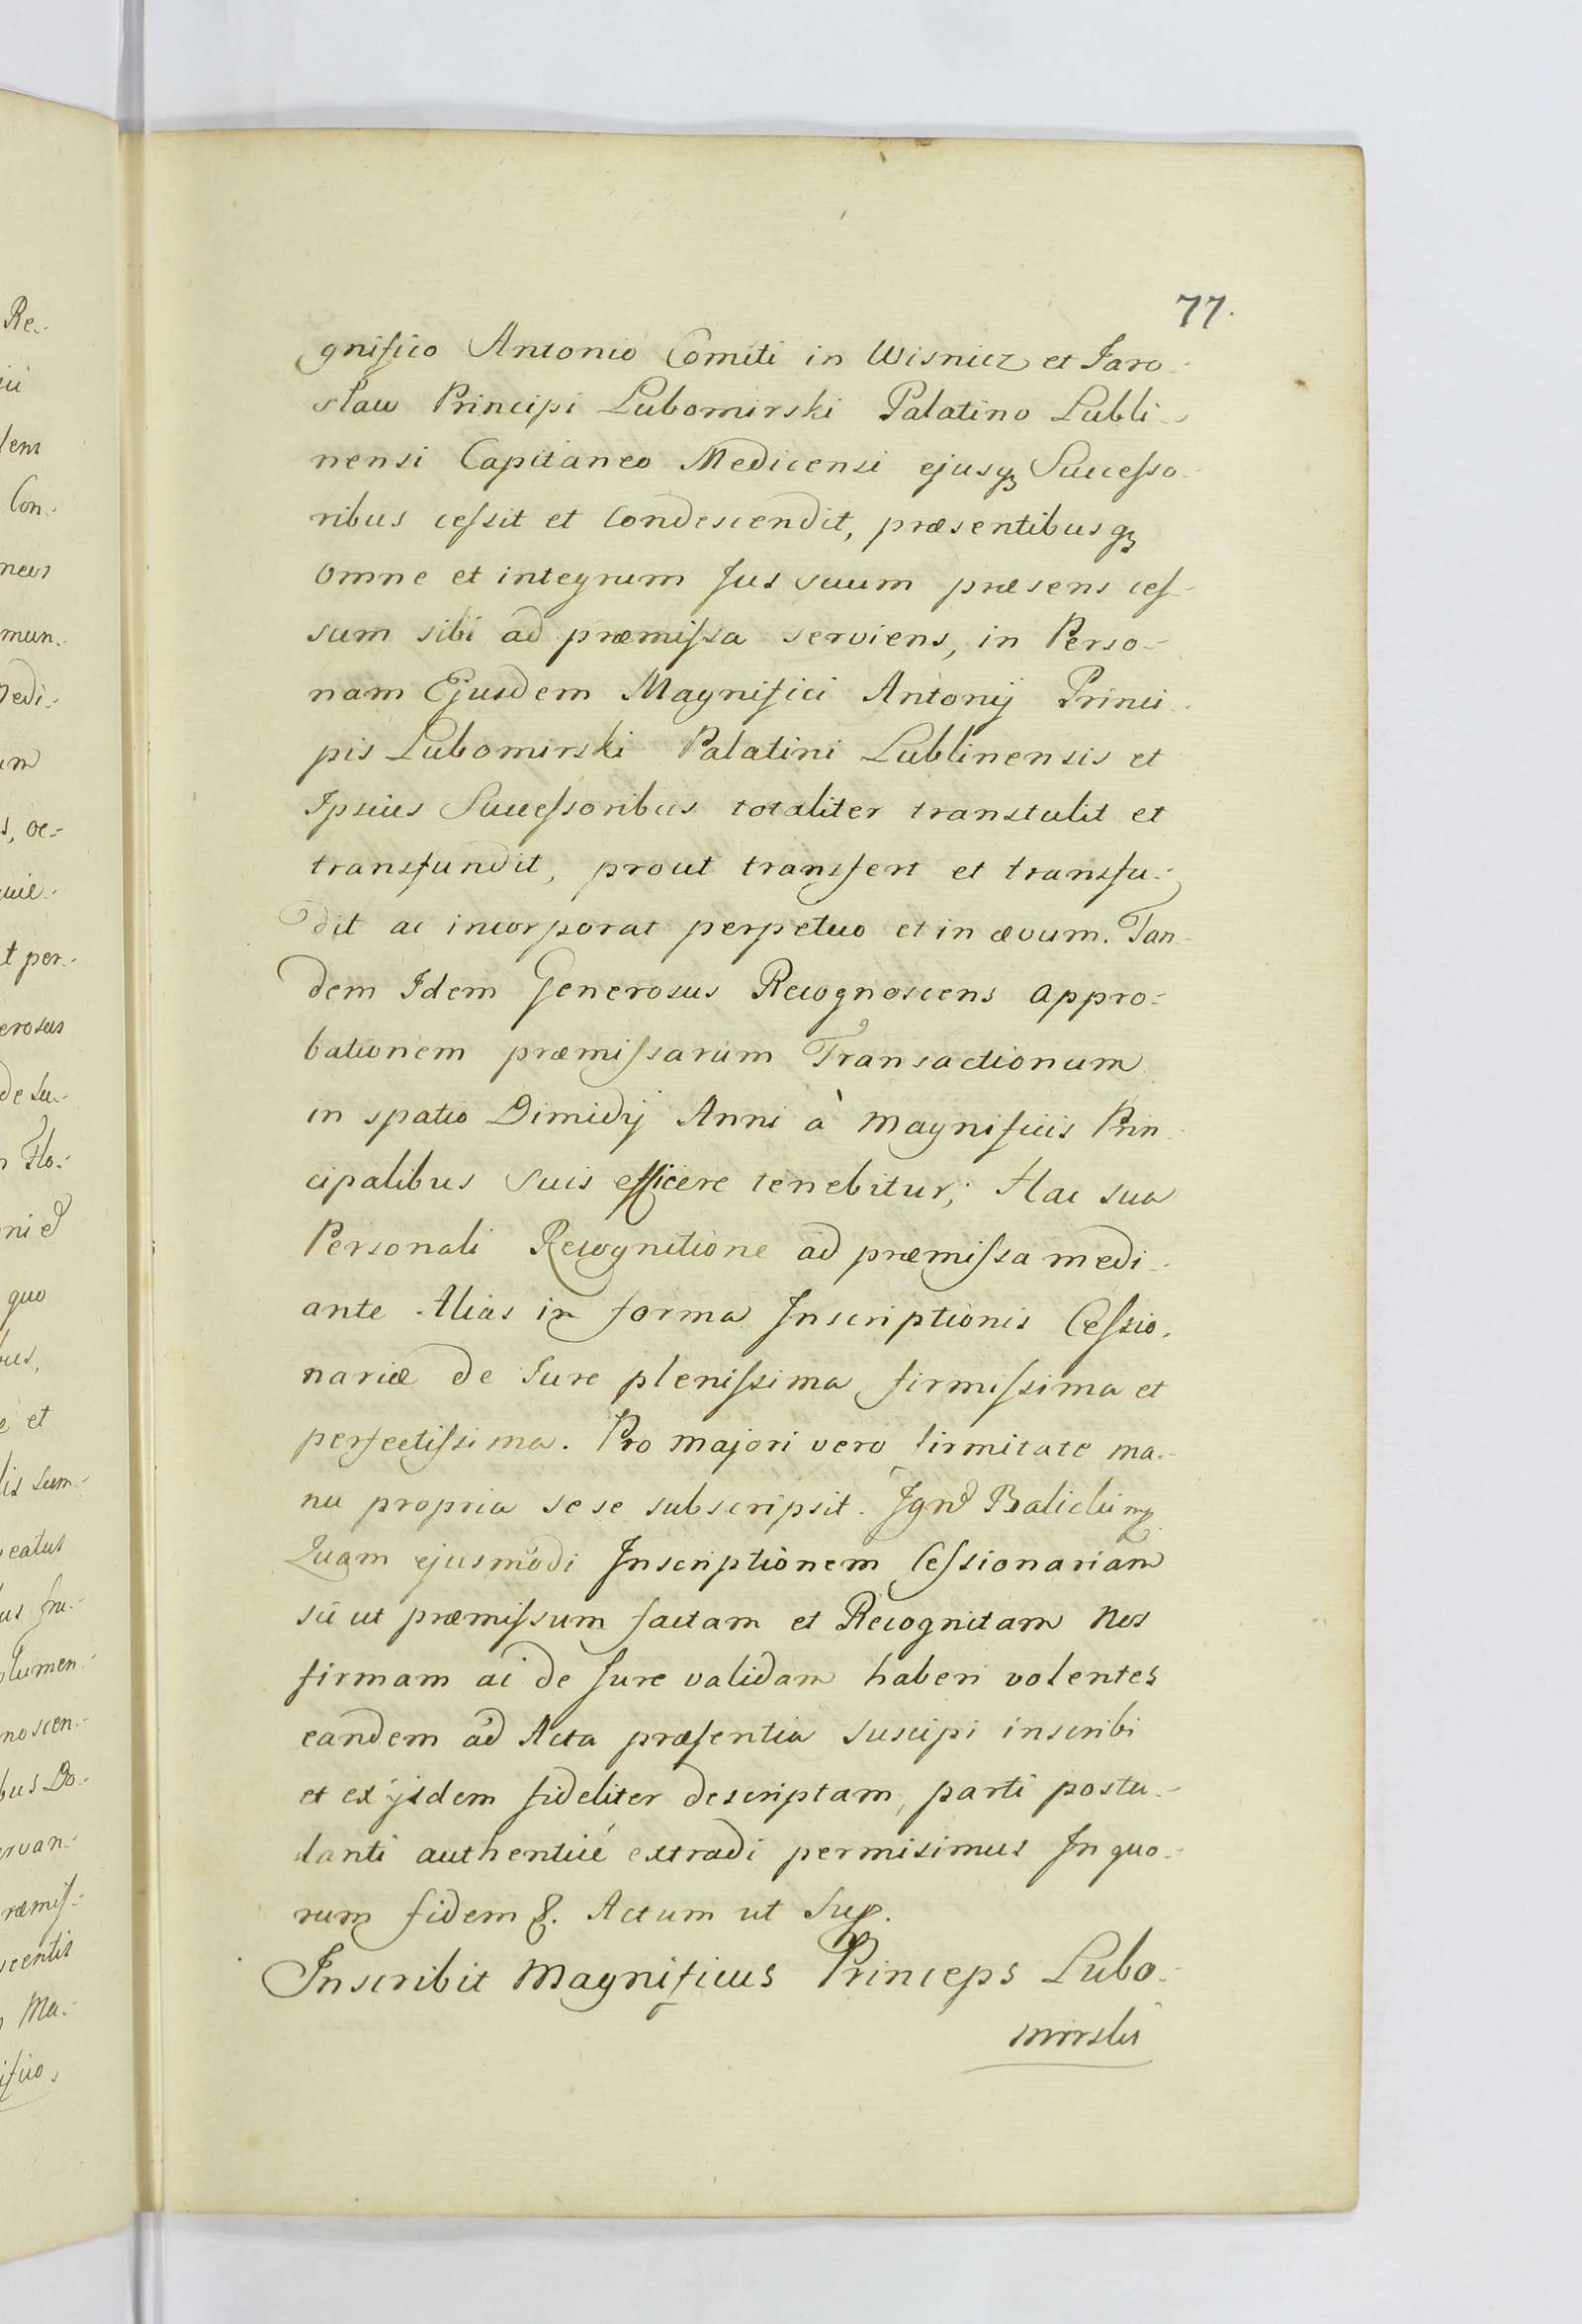 77.
gnifico Antonio Comiti in Wisnicz et Jaro-
slaw Principi Lubomirski Palatino Lubli-
nensi Capitaneo Medicensi ejusq3 Successo-
ribus cessit et Condescendit, præsentibusq3
omne et integrum Jus suum præsens ces-
sum sibi ad præmissa serviens, in Perso-
nam Ejusdem Magnifici Antonij Princi-
pis Lubomirski Palatini Lublinensis et
Ipsius Successoribus totaliter transtulit et
transfundit, prout transfert et transfu-
dit ac incorporat perpetuo et in ævum. Tan-
dem Idem Generosus Recognoscens appro-
bationem præmissarum Transactionum
in spatio Dimidij Anni à Magnificis Prin-
cipalibus suis efficere tenebitur; Hac sua
Personali Recognitione ad præmissa medi-
ante Alias in forma Inscriptionis Cessio-
nariæ de Jure plenissima firmissima et
perfectissima. Pro majori vero firmitate ma-
nu propria sese subscripsit. Baliclii mp
Quam ejusmodi Inscriptionem Cessionariam
sic ut præmissum factam et Recognitam Nos
firmam ac de Jure validam haberi volentes
eandem ad Acta præsentia suscipi inscribi
et ex ijsdem fideliter descriptam, parti postu-
lanti authenticé extradi permisimus In quo-
rum fidem &. Actum ut Sup.
Inscribit Magnificus Princeps Lubo-
mirski
Re-
lem
Con-
mun-
s, oe-
t per-
erosus
de su-
Flo-
quo
e et
lis sum-
eatus
lumen-
noscen-
bus Do-
ræmis-
scentis
Ma-
ifico,